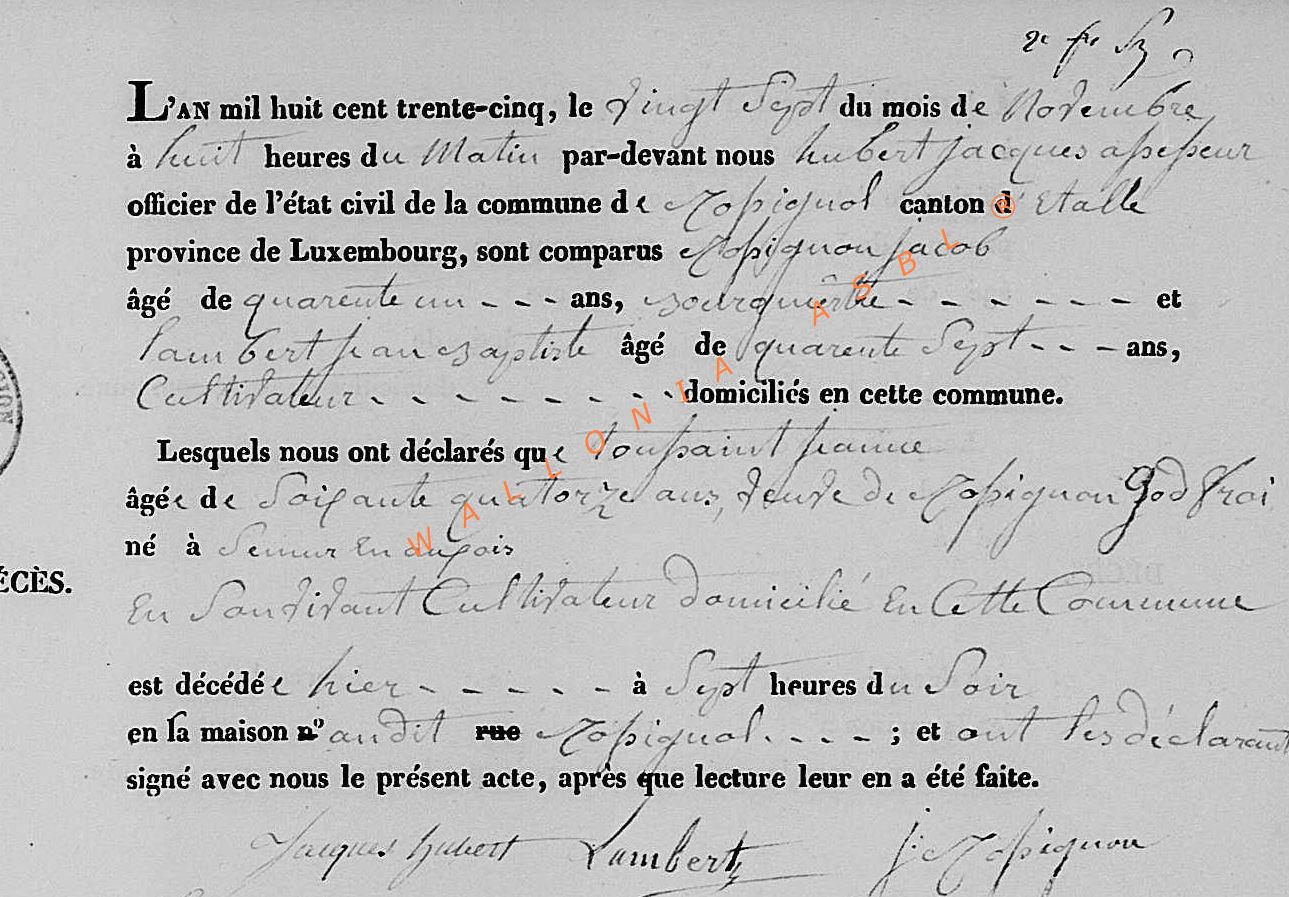 L'AN mil huit cent trente-cinq, le vingt Sept du mois de Novembre
à huit heures du Matin par-devant nous hubert jacques assesseur
officier de l'état civil de la commune de Rossignol canton d'Etalle
province de Luxembourg, sont comparus Rossignon jacob
âgé de quarente un - - - ans, - - - - - - et
Lambert jean Baptiste âgé de quarente Sept - - - ans,
Cultivateur - - - - - - - - domiciliés en cette commune.
Lesquels nous ont déclarés que toussaint jeanne
âgée de Soixante quatorze ans, veuve de Rossignon Godfroi
né à Semur En auxois
En Son vivant Cultivateur domicilié En Cette Commune
ÉCÈS.
est décédée hier - - - - - à Sept heures du Soir
en la maison n° audit rue Rossignol - - - - ; et ont les déclarant
signé avec nous le présent acte, après que lecture leur en a été faite.
Jacques hubert Lambert j: Rossignon
WALLONIA ASBL ®